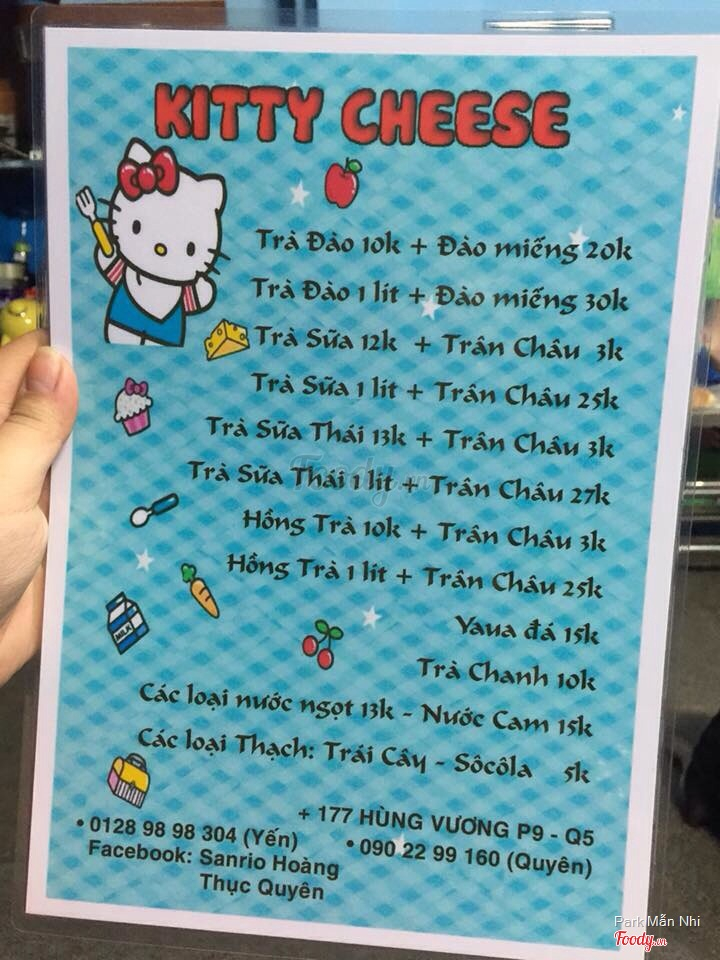 KITTY CHEESE
Trà Đào 10k + Đào miếng 20k
Trà Đào 1 lít + Đào miếng 30k
Trà Sữa 12k + Trân Châu 3k
Trà Sữa 1 lít + Trân Châu 25k
Trà Sữa Thái 13k + Trân Châu 3k
Trà Sữa Thái 1 lít + Trân Châu 27k
Hồng Trà 10k + Trân Châu 3k
Hồng Trà 1 lít + Trân Châu 25k
Yaua đá 15k
Trà Chanh 10k
Các loại nước ngọt 13k - Nước Cam 15k
Các loại Thạch: Trái Cây - Sôcôla 5k
MILK
+ 177 HÙNG VƯƠNG P9 - Q5
• 0128 98 98 304 (Yến) • 090 22 99 160 (Quyên)
Facebook: Sanrio Hoàng
Thục Quyên
Foody.vn
Park Mẫn Nhi
Foody.vn